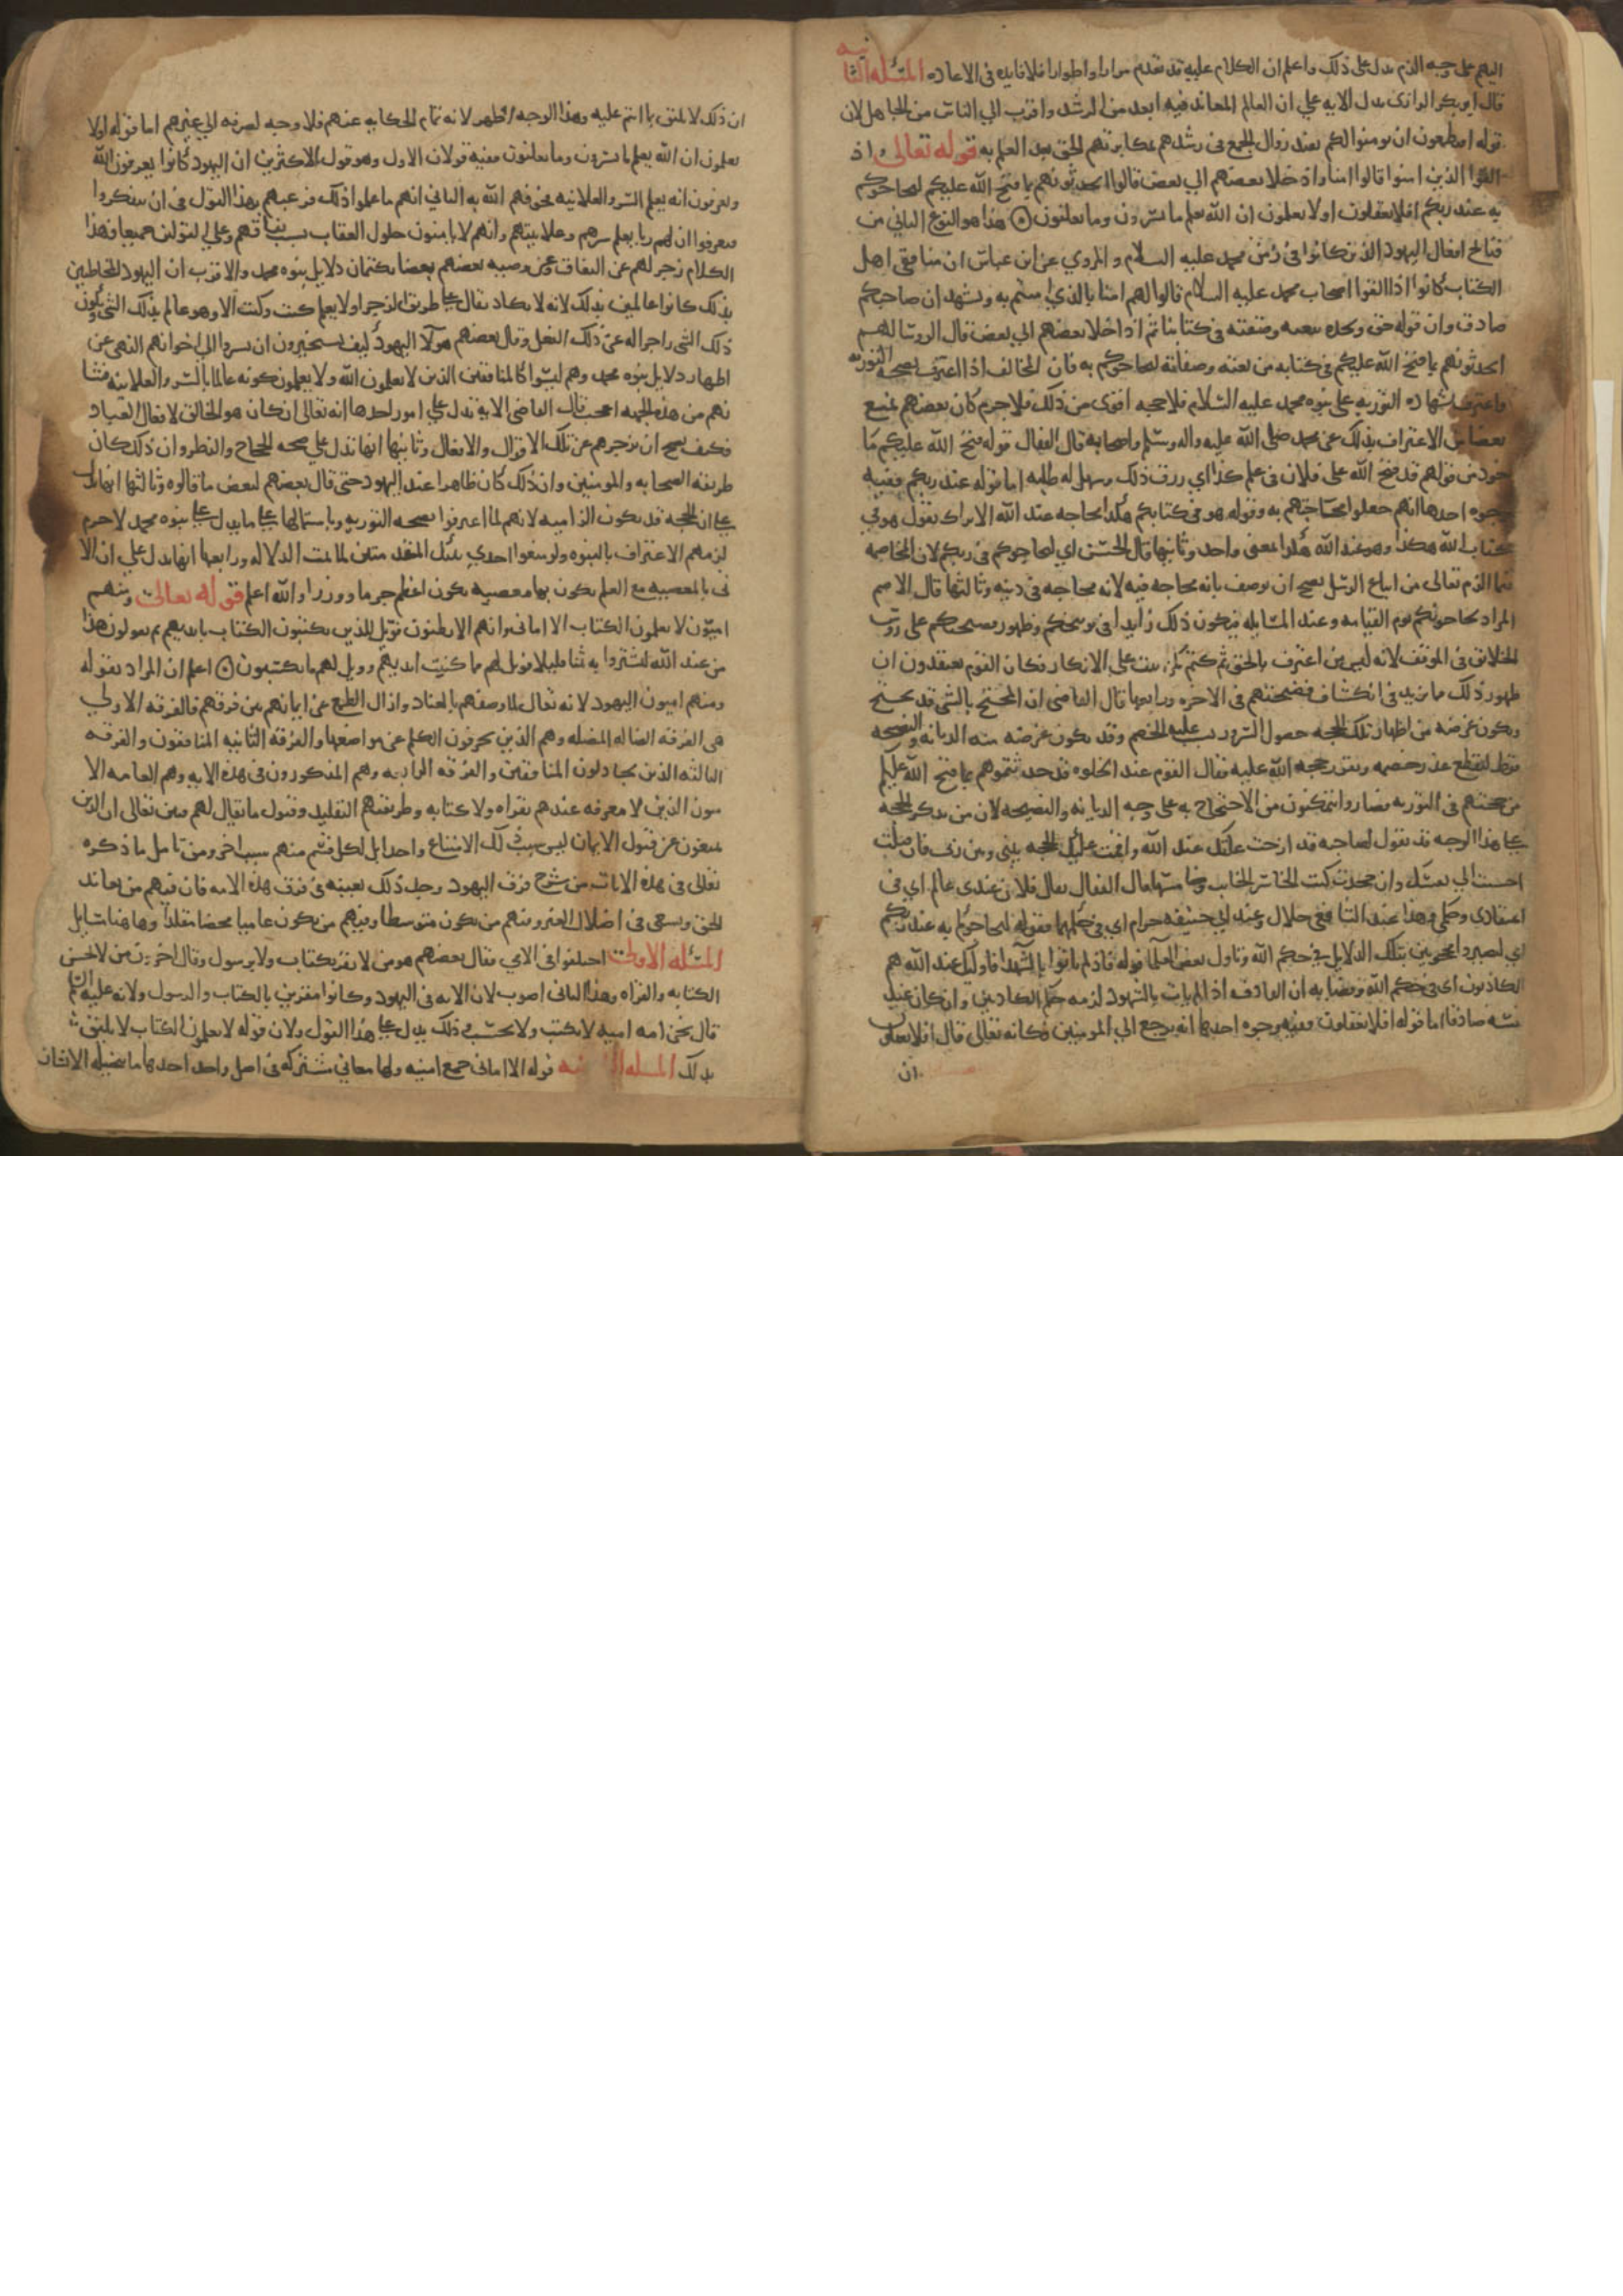 اليهم على وجه الذم يدل على ذلك واعلم ان الكلام عليه قد تقدم مرارا واطوارا فلا فايده في الاعاده المسئله الثانيه
قال ابو بكر الرازى تدل الايه على ان العالم المعاند فيه ابعد من الرشد واقرب الي الناس من الجاهل لان
قوله افتطمعون ان يومنوا لكم يفيد زوال الطمع فى رشدهم لمكابرتهم الحق بعد العلم به قوله تعالى واذ
القوا الذين امنوا قالوا امنا واذ خلا بعضهم الي بعض قالوا اتحدثونهم بما فتح الله عليكم ليحاجوكم
به عند ربكم افلا تعقلون اولا يعلمون ان الله يعلم ما يسرون وما يعلنون هذا هو النوع الثاني من
قبائح افعال اليهود الذين كانوا في زمن محمد عليه السلام والمروي عن ابن عباس ان منافقى اهل
الكتاب كانوا اذا لقوا اصحاب محمد عليه السلام قالوا لهم امنا بالذي امنتم به ونشهد ان صاحبكم
صادق وان قوله حق ونجده بنعته وصفته فى كتابنا ثم اذا خلا بعضهم الي بعض قال الروسا لهم
اتحدثونهم بما فتح الله عليكم فى كتابه من نعته وصفاته ليحاجوكم به فان المخالف اذا اعترف بصحه التوريه
واعترف بشهاده التوريه على نبوه محمد عليه السلام فلا حجه اقوى من ذلك فلا جرم كان بعضهم يمنع
بعضا من الاعتراف بذلك عند محمد صلى الله عليه واله وسلم واصحابه قال القفال قوله فتح الله عليكم ما
خوذ من قولهم قد فتح الله على فلان فى علم كذا اي رزق ذلك وسهل له طلبه اما قوله عند ربكم ففيه
وجوه احدها انهم جعلوا محاجتهم به وقوله هو فى كتابكم هكذا محاجه عند الله الا تراك تقول هو في
كتاب الله هكذا وهو عند الله هكذا بمعنى واحد وثانيها قال الحسن اي ليحاجوكم فى ربكم لان المحاجه
فيما الزم تعالى من اتباع الرسل يصح ان توصف بانه محاجه فيه لانه محاجه فى دينه وثالثها قال الاصم
المراد يحاجونكم يوم القيامه وعند المسايله فيكون ذلك زايدا فى توبيخكم وظهور فضيحتكم على روس
الخلائق فى الموقف لانه ليس من اعترف بالحق ثم كتم كمن ثبت على الانكار فكان القوم يعتقدون ان
ظهور ذلك مما يزيد فى انكشاف فضيحتهم فى الاخره ورابعها قال القاضى ان المحتج بالشى قد يحتج
ويكون غرضه من اظهار تلك الحجه حصول السرور بسبب غلبه الخصم وقد يكون غرضه منه الديانه والنصيحه
فقط ليقطع عذر خصمه ويقرر حجه الله عليه فقال القوم عند الخلوه قد حدثتموهم بما فتح الله عليكم
من حجتهم فى التوريه فصاروا يتمكنون من الاحتجاج به على وجه الديانه والنصيحه لان من يذكر الحجه
على هذا الوجه قد يقول لصاحبه قد اوجبت عليك عند الله واقمت عليك الحجه بينى وبين ربى فان قبلت
احسنت الي نفسك وان جحدت كنت الخاسر الخائب وخامسها قال القفال يقال فلان عندى عالم اي في
اعتقادى وحكمى وهذا عند الشافعى حلال وعند ابي حنيفه حرام اي في حكمهما فقوله ليحاجوكم به عند ربكم
اي لتصيروا محجوجين بتلك الدلايل في حكم الله وتاول بعض العلما قوله فاذ لم ياتوا بالشهدا فاوليك عند الله هم
الكاذبون اى في حكم الله وقضايه ان القاذف اذا لم يات بالشهود لزمه حكم الكاذبين وان كان عند
نفسه صادقا اما قوله افلا تعقلون ففيه وجوه احدها انه يرجع الي المومنين فكانه تعالى قال افلا تعقلون
ان
ان ذلك لا يليق بما انتم عليه وهذا الوجه اظهر لانه تمام الحكايه عنهم فلا وجه لصرفه الي غيرهم اما قوله اولا
يعلمون ان الله يعلم ما يسرون وما يعلنون ففيه قولان الاول وهو قول الاكثرين ان اليهود كانوا يعرفون الله
ويعرفون انه يعلم السر والعلانيه فخوفهم الله به الثاني انهم ما علموا ذلك فرغبهم بهذا القول فى ان يتفكروا
فيعرفوا ان لهم ربا يعلم سرهم وعلانيتهم وانهم لا يامنون حلول العقاب بسبب نفاقهم وعلى القولين جميعا فهذا
الكلام زجر لهم عن النفاق وعن وصيه بعضهم بعضا بكتمان دلايل نبوه محمد والاقرب ان اليهود المخاطبين
بذلك كانوا عالمين بذلك لانه لا يكاد يقال على طريق الزجر اولا يعلم كيت وكيت الا وهو عالم بذلك الشى ويكون
ذلك الشى زاجرا له عن ذلك الفعل وقال بعضهم هولا اليهود كيف يستجيزون ان يسروا الى اخوانهم النهى عن
اظهار دلايل نبوه محمد وهم ليسوا كالمنافقين الذين لا يعلمون الله ولا يعلمون كونه عالما بالسر والعلانيه فشا
نهم من هذه الجهه اعجب قال القاضى الايه تدل على امور احدها انه تعالى ان كان هو الخالق لافعال العباد
فكيف يصح ان يزجرهم عن تلك الاقوال والافعال وثانيها انها تدل على صحه الحجاج والنظر وان ذلك كان
طريقه الصحابه والمومنين وان ذلك كان ظاهرا عند اليهود حتى قال بعضهم لبعض ما قالوه وثالثها انها تدل
على ان الحجه قد تكون الزاميه لانهم لما اعترفوا بصحه التوريه وباشتمالها على ما يدل على نبوه محمد لا جرم
لزمهم الاعتراف بالنبوه ولو منعوا احدي تلك المقدمتين لما تمت الدلاله ورابعها انها تدل على ان الا
تى بالمعصيه مع العلم بكون بها معصيه يكون اعظم جرما ووزرا والله اعلم قوله تعالى ومنهم
اميون لا يعلمون الكتاب الا امانى وان هم الا يظنون فويل للذين يكتبون الكتاب بايديهم ثم يقولون هذا
من عند الله ليشتروا به ثمنا قليلا فويل لهم مما كتبت ايديهم وويل لهم مما يكسبون اعلم ان المراد بقوله
ومنهم اميون اليهود لانه تعالى لما وصفهم بالعناد وازال الطمع عن ايمانهم بين فرقهم فالفرقه الاولي
هى الفرقه الضاله المضله وهم الذين يحرفون الكلم عن مواضعه والفرقه الثانيه المنافقون والفرقه
الثالثه الذين يجادلون المنافقين والفرقه الرابعه وهم المذكورون فى هذه الايه وهم العامه الا
ميون الذين لا معرفه عندهم بقراه ولا كتابه وطريقتهم التقليد وقبول ما يقال لهم فبين تعالى ان الذين
يمتنعون عن قبول الايمان ليس سبب ذلك الامتناع واحدا بل لكل قسم منهم سبب اخر ومن تامل ما ذكره
تعالى فى هذه الايات من شرح فرق اليهود وجد ذلك بعينه فى فرق هذه الامه فان فيهم من يعاند
الحق ويسعى فى اضلال الغير ومنهم من يكون متوسطا وفيهم من يكون عاميا محضا مقلدا وهاهنا مسايل
المسئله الاولى اختلفوا فى الامي فقال بعضهم هو من لا يقر بكتاب ولا برسول وقال اخرون من لا يحسن
الكتابه والقراه وهذا الثانى اصوب لان الايه فى اليهود وكانوا مقرين بالكتاب والرسول ولانه عليه السلام
قال نحن امه اميه لا نكتب ولا نحسب وذلك يدل على هذا القول ولان قوله لا يعلمون الكتاب لا يليق الا
بذلك المسله الثانيه قوله الا امانى جمع امنيه ولها معاني مشتركه فى اصل واحد احدها ما تتخيله الانسان